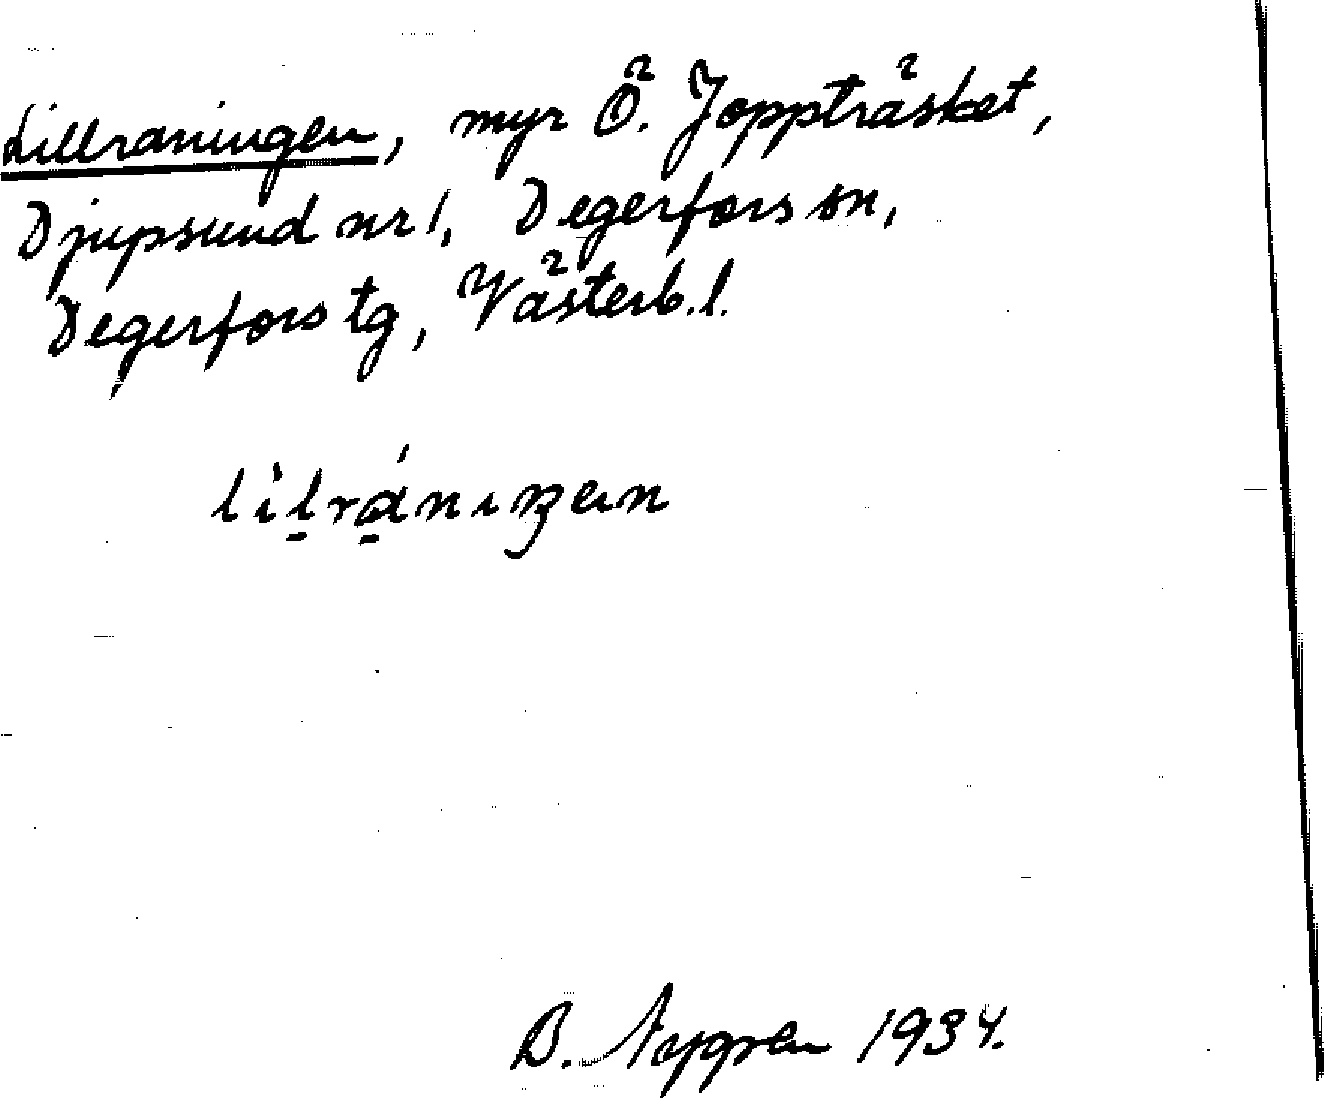 Lillraningen, myr Ö. Joppträsket,
Djupsund nr 1, Degerfors sn,
Degerfors tg, Västerb. l.
B. Nygren 1934.